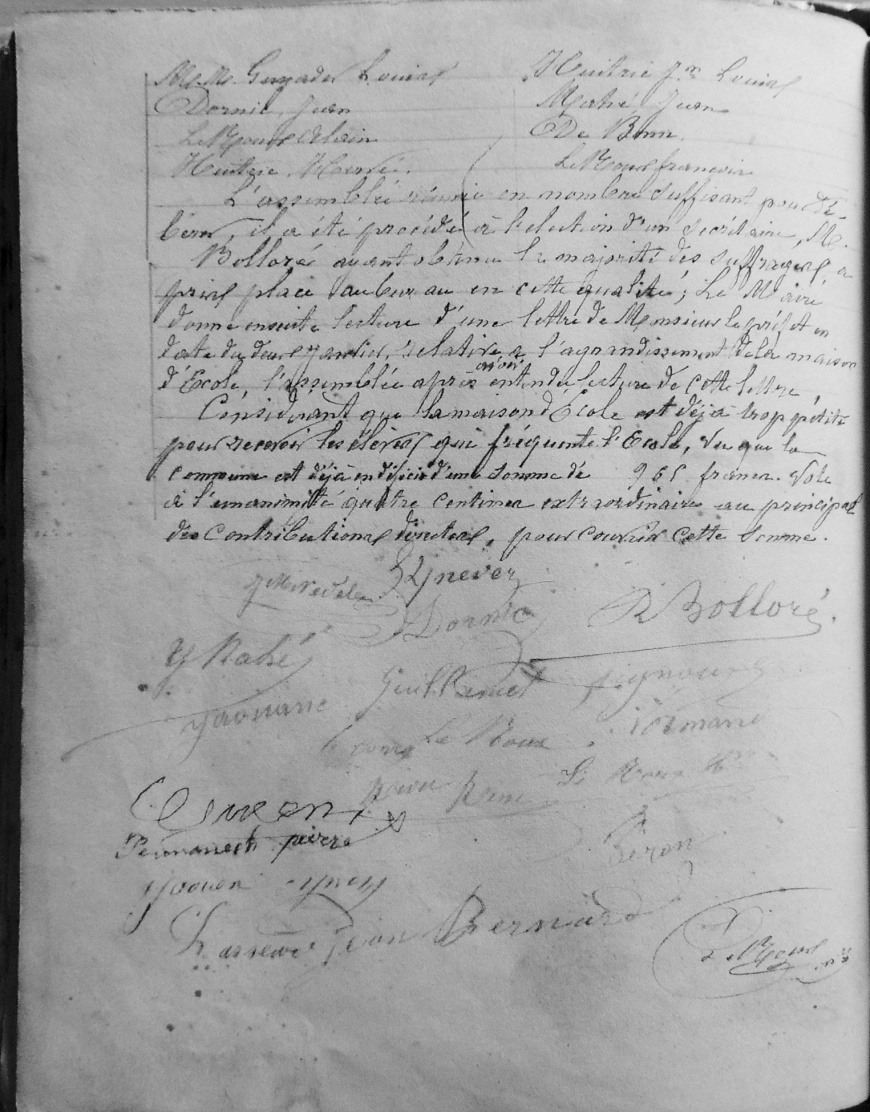 M.M. Gunader Louis Huitric Jn Louis
Dornic, Jean Mahé, Jean
Le Roux Alain De Bonn
Huitric, Hervé. Le Roux françois
L'assemblée réunie en nombre suffisant pour dé-
bérer, il a été procédé à l'election d'un Secrétaire, M.
Bolloré ayant obtenu la majorité des suffrages, a
pris place au bureau en cette qualité; Le Maire
donne ensuite lecture d'une lettre de Monsieur le préfet en
date du deux janvier, relative à l'agrandissement de la maison
d'École, l'assemblée après avoir entendu lecture de cette lettre,
Considérant que la maison d'École est déjà trop petite
pour recevoir les élèves qui fréquente l'École, Vu que la
commune est déjà en déficit d'une somme de 965 francs. Vote
à l'unanimité quatre centimes extraordinaire au principal
des Contributions directes, pour couvrir cette somme.
Quénever
Dornic R Bolloré
Y Mahé
Yaouanc Guillamet
Le Roux
Le Roux
Péron
pierre
Yvonen
Jean Bernard
Le Roux